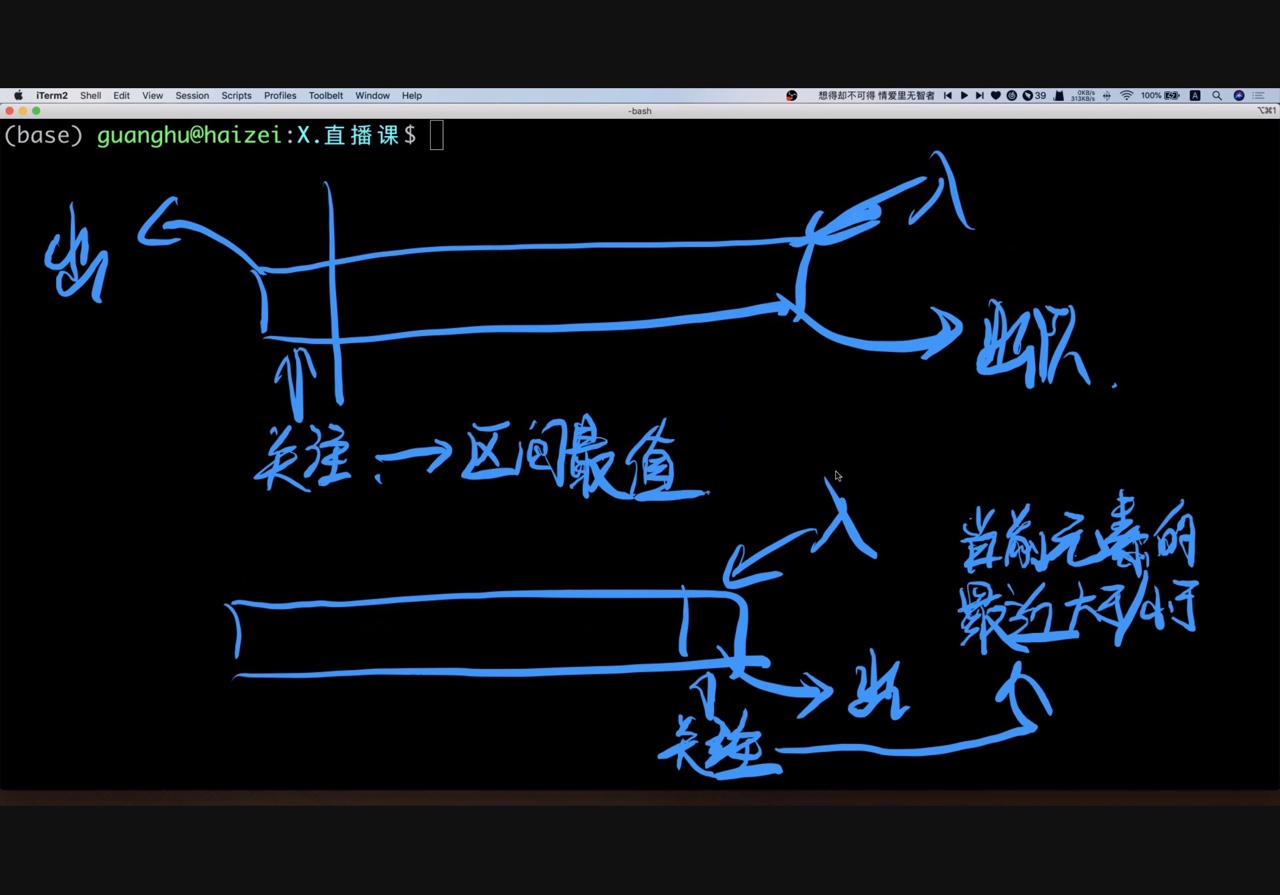 iTerm2 Shell Edit View Session Scripts Profiles Toolbelt Window Help 想得却不可得 情爱里无智者 39 0KB/s 313KB/s 100% A
-bash ⌥⌘1
(base) guanghu@haizei:X.直播课$
入
出
出队.
关注. → 区间最值
入
当前元素的
最近大于/小于
出
关注